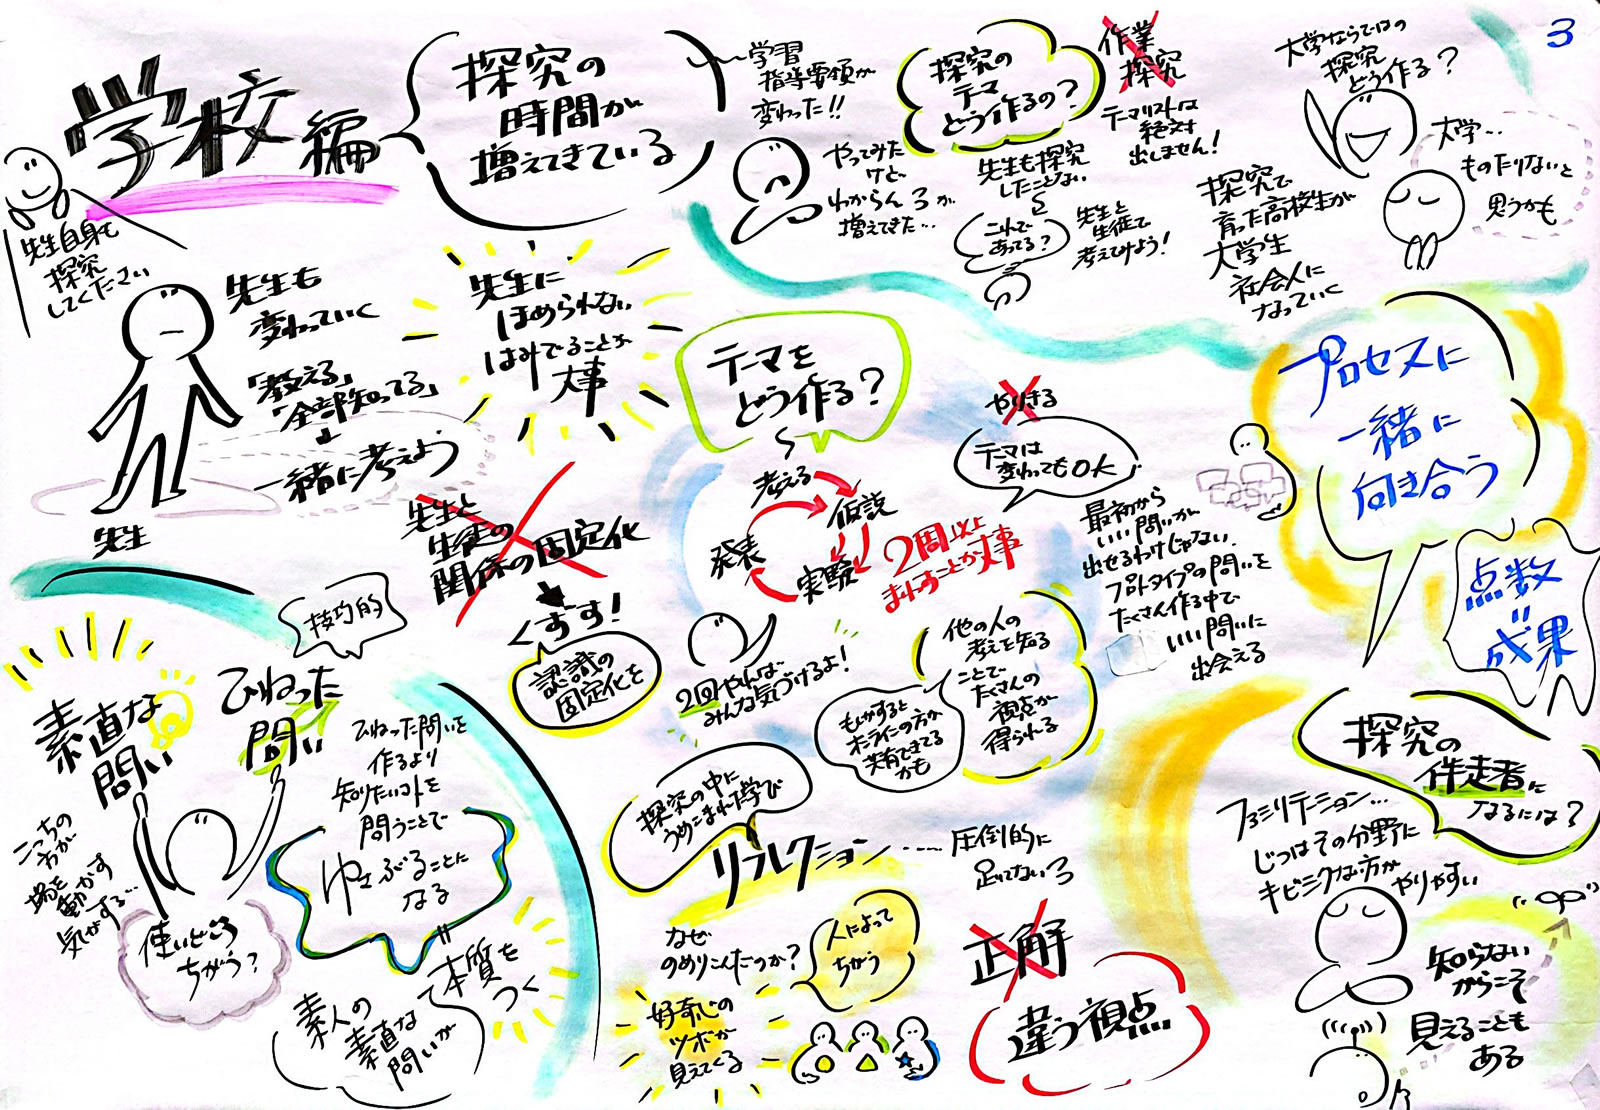 3
学校編
探究の
時間が
増えてきている
学習
指導要領が
変わった!!
やってみた
けど
わからんろが
増えてきた…
探究の
テマ
どう作るの?
作業
探究
テーマリストは
絶対
出しません!
先生も探究
したことない
これで
あってる?
先生と
生徒で
考えてみよう!
大学ならではの
探究
どう作る?
大学…
ものたりないと
思うかも
探究で
育った高校生が
大学生
社会人に
なっていく
先生自身も
探究
してください
先生も
変わっていく
「教える」
「全部知ってる」
↓
一緒に考えよう
先生
先生に
ほめられない
はみでることが
大事
先生と
生徒の
関係の固定化
くずす!
認識の
固定化を
テーマを
どう作る?
考える
仮説
実験
発表
2周以上
まわすことが大事
やりきる
テーマは
変わってもOK
2回やれば
みんな気づけるよ!
最初から
いい問いが
出せるわけじゃない
プロトタイプの問いを
たくさん作る中で
いい問いに
出会える
プロセスに
一緒に
向き合う
点数
=
成果
技巧的
素直な
問い
ひねった
問い
こっちの
方が
場を
動かす
気がする…
使いどころ
ちがう?
ひねった問いを
作るより
知りたいコトを
問うことで
ゆさぶることに
なる
=
本質を
つく
素人の
素直な
問いが
他の人の
考えを知る
ことで
たくさんの
視点が
得られる
もしかすると
オンラインの方が
共有できてる
かも
探究の中に
うめこまれた学び
リフレクション……
圧倒的に
足りてないろ
なぜ
のめりこんだのか?
人によって
ちがう
好奇心の
ツボが
見えてくる
正解
違う視点
探究の
伴走者に
なるには?
ファシリテーション…
じつはその分野に
キビシクない方が
やりやすい
知らない
からこそ
見えることも
ある